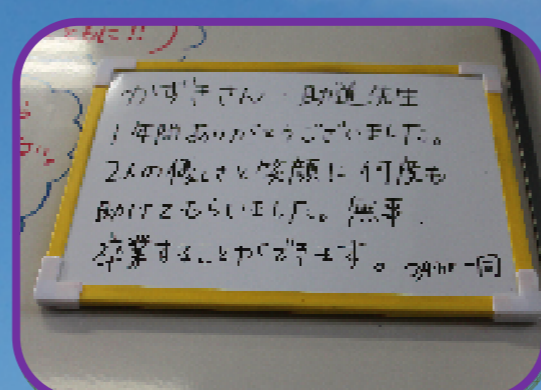 かずきさん・助道先生
1年間ありがとうございました。
2人の優しさと笑顔に何度も
助けてもらいました。無事
卒業することができます。 一同